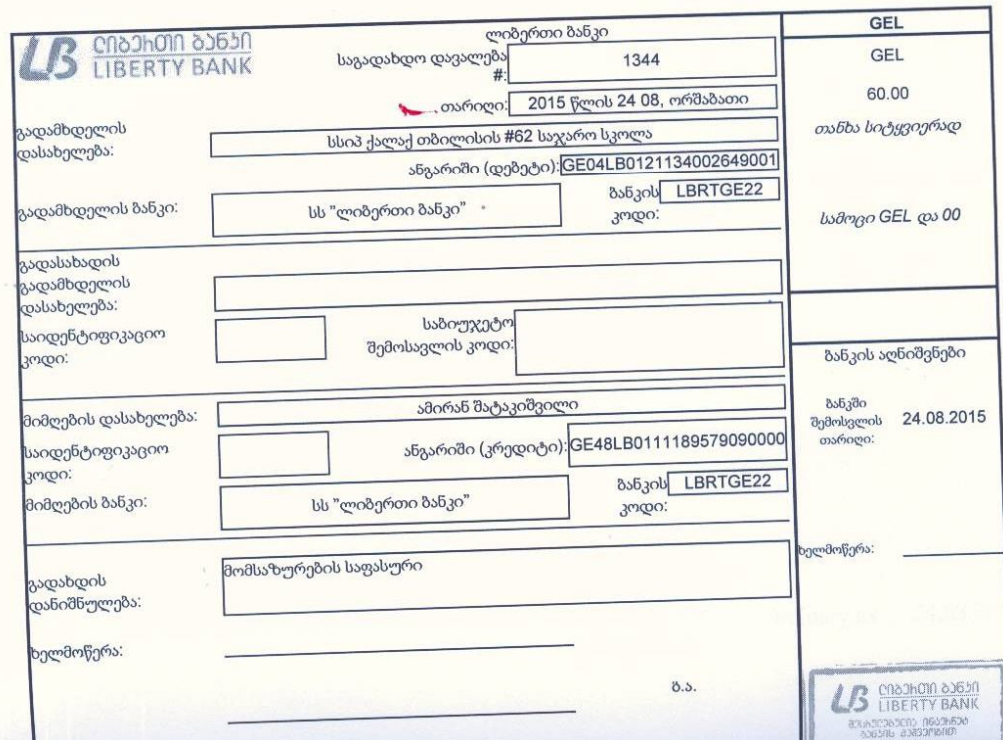 ლიბერთი ბანკი
LIBERTY BANK
ლიბერთი ბანკი
საგადახდო დავალება #: 1344
თარიღი: 2015 წლის 24 08, ორშაბათი
გადამხდელის დასახელება: სსიპ ქალაქ თბილისის #62 საჯარო სკოლა
ანგარიში (დებეტი): GE04LB0121134002649001
გადამხდელის ბანკი: სს "ლიბერთი ბანკი" ბანკის კოდი: LBRTGE22
გადასახადის
გადამხდელის
დასახელება:
საიდენტიფიკაციო კოდი:
საბიუჯეტო შემოსავლის კოდი:
მიმღების დასახელება: ამირან შატაკიშვილი
საიდენტიფიკაციო კოდი:
ანგარიში (კრედიტი): GE48LB0111189579090000
მიმღების ბანკი: სს "ლიბერთი ბანკი" ბანკის კოდი: LBRTGE22
გადახდის დანიშნულება: მომსაზურების საფასური
ხელმოწერა:
ბ.ა.
GEL
GEL
60.00
თანხა სიტყვიერად
სამოცი GEL და 00
ბანკის აღნიშვნები
ბანკში შემოსვლის თარიღი: 24.08.2015
ხელმოწერა:
ლიბერთი ბანკი
LIBERTY BANK